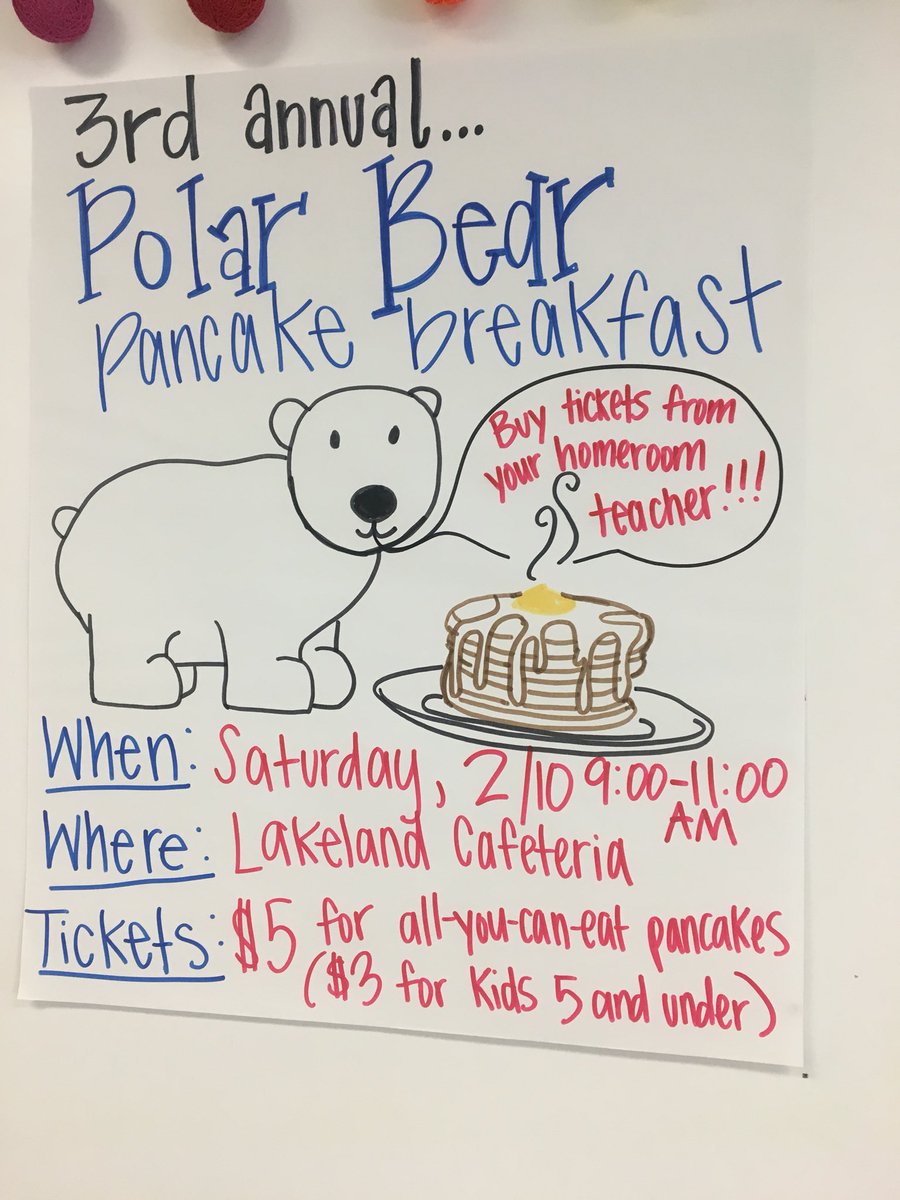 3rd annual...
Polar Bear
pancake breakfast
Buy tickets from
your homeroom
teacher!!!
When: Saturday, 2/10 9:00-11:00
AM
Where: Lakeland Cafeteria
Tickets: $5 for all-you-can-eat pancakes
($3 for kids 5 and under)